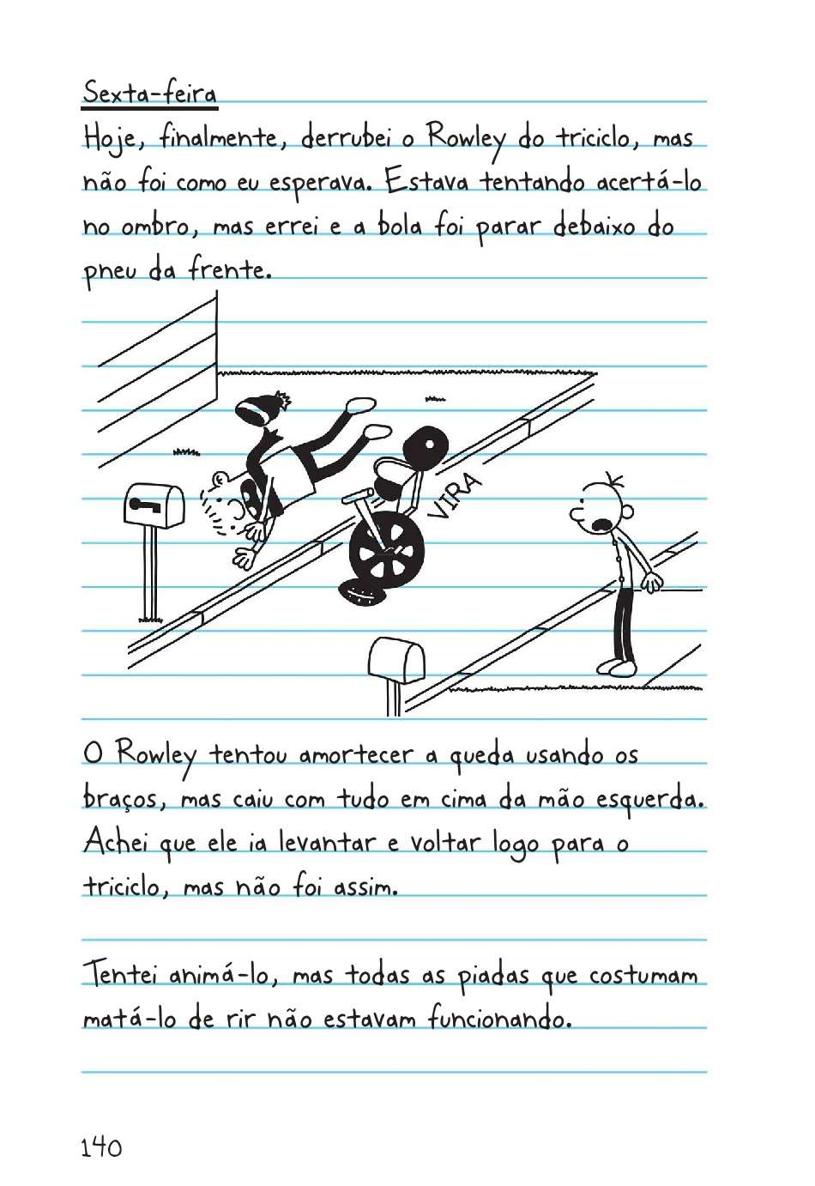 Sexta-feira
Hoje, finalmente, derrubei o Rowley do triciclo, mas
não foi como eu esperava. Estava tentando acertá-lo
no ombro, mas errei e a bola foi parar debaixo do
pneu da frente.
VIRA
O Rowley tentou amortecer a queda usando os
braços, mas caiu com tudo em cima da mão esquerda.
Achei que ele ia levantar e voltar logo para o
triciclo, mas não foi assim.
Tentei animá-lo, mas todas as piadas que costumam
matá-lo de rir não estavam funcionando.
140